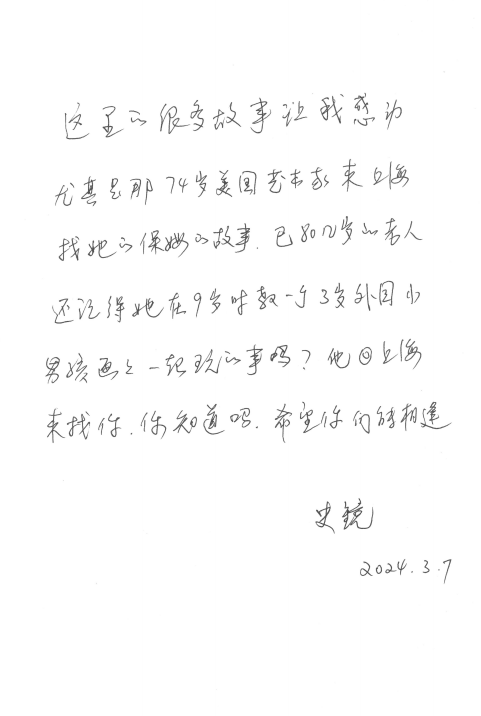 这里的很多故事让我感动
尤其是那74岁美国艺术家来上海
找她的保姆的故事.已80几岁的老人
还记得她在9岁时教一个3岁外国小
男孩画画一起玩的事吗?他回上海
来找你.你知道吗.希望你们能相逢
史镜
2024.3.7